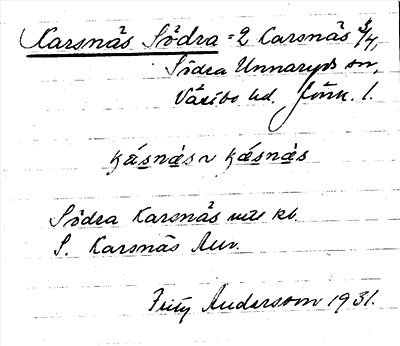 Karsnäs Södra = 2 Karsnäs 3/4,
Södra Unnaryds sn,
Västbo hd. Jönk. l.
kásnàs ~ kásnàs
Södra Karsnäs kb.
S. Karsnäs
Andersson 1931.